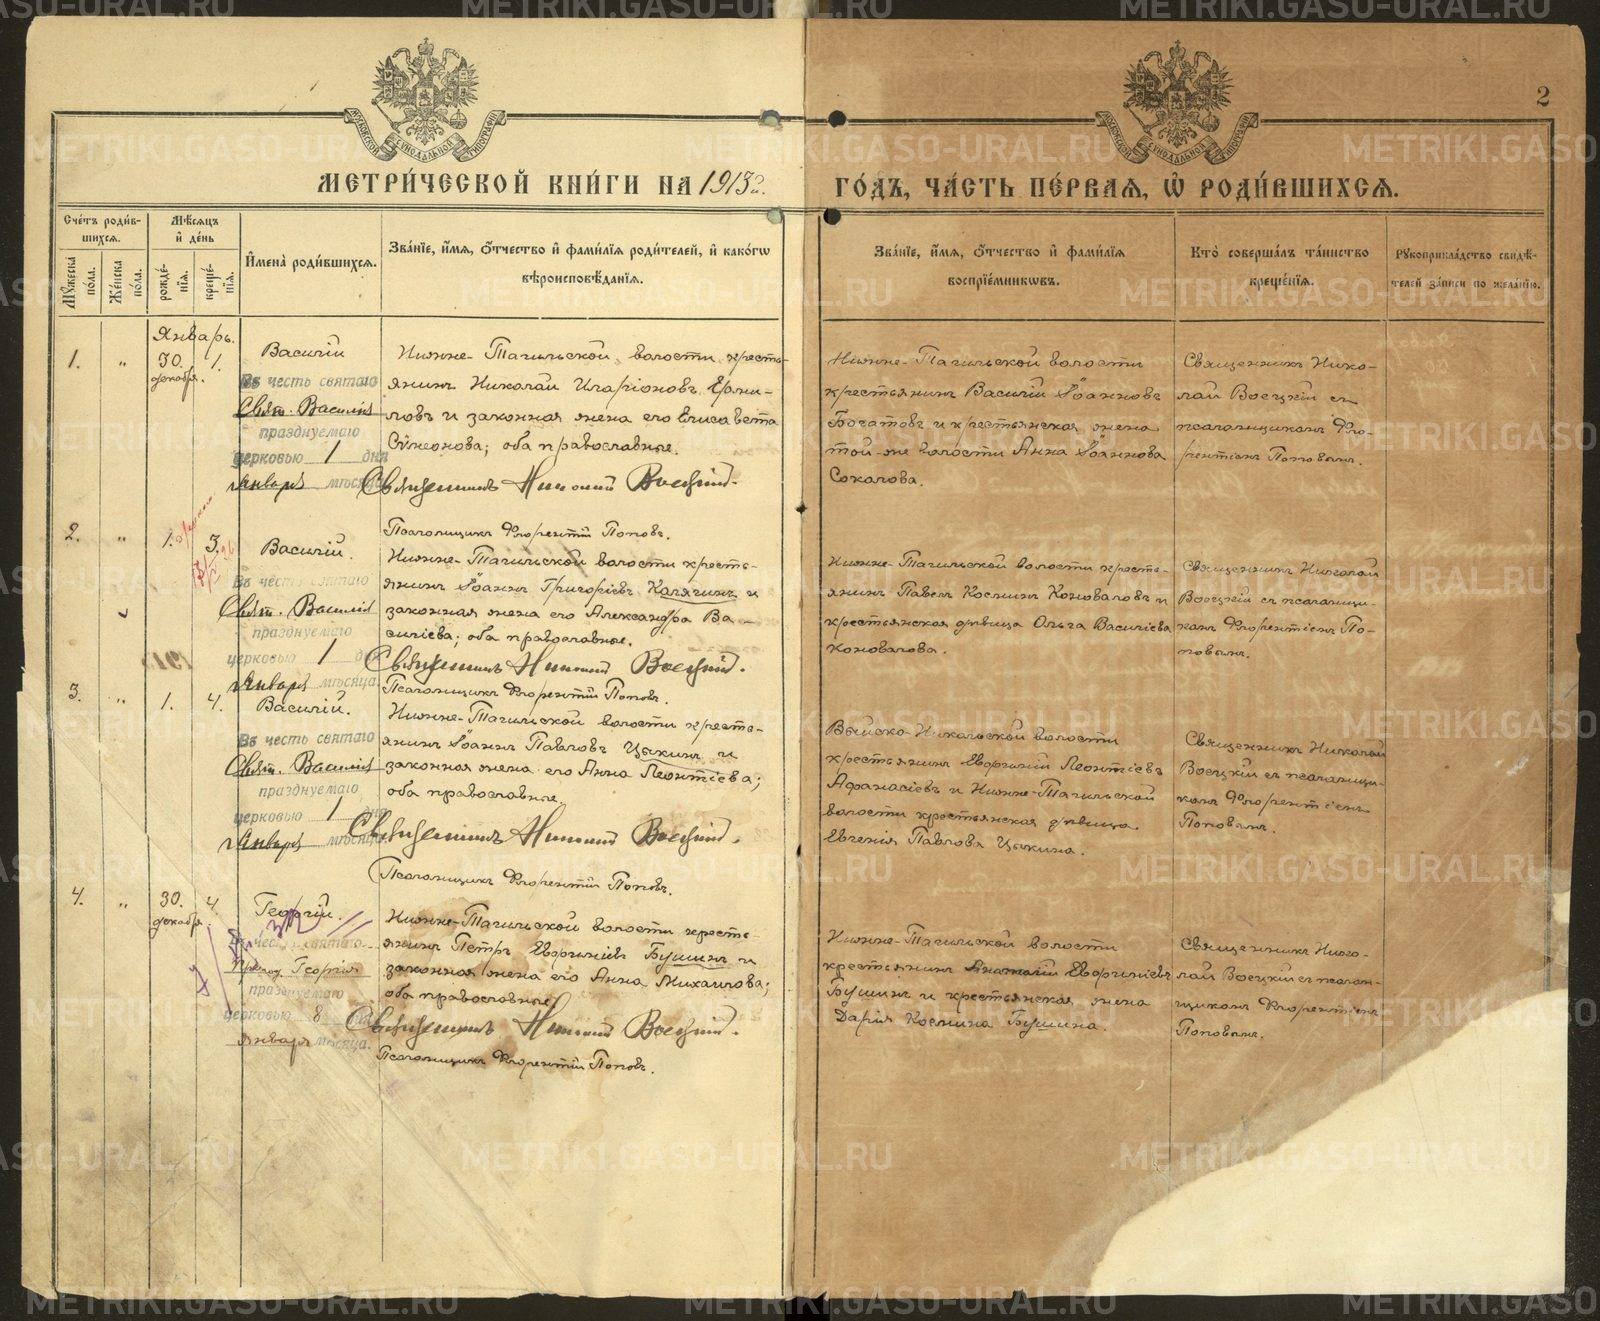 МОСКОВСКОЙ СѴНОДАЛЬНОЙ ТИПОГРАФІИ
МОСКОВСКОЙ СѴНОДАЛЬНОЙ ТИПОГРАФІИ
2
МЕТРИ́ЧЕСКОЙ КНИ́ГИ НА 1913 г. ГО́ДЪ, ЧА́СТЬ ПЕ́РВАЯ, Ѡ҆ РОДИ́ВШИХСЯ.
Сче́тъ роди́вшихся.
Му́жеска по́ла.
Же́нска по́ла.
Мѣ́сяцъ и҆ де́нь
рожде́нїя.
креще́нїя.
И҆мена̀ роди́вшихся.
Зва́нїе, и҆́мя, ѻ҆́тчество и҆ фами́лїя роди́телей, и҆ како́гѡ
вѣроисповѣ́данїя.
Зва́нїе, и҆́мя, ѻ҆́тчество и҆ фами́лїя
воспрїе́мникѡвъ.
Кто̀ соверша́лъ та́инство
креще́нїя.
Рукоприкла́дство свидѣ́-
телей за́писи по жела́нїю.
Январь.
1. " 30. декабря. 1.
Василій
Въ честь святаго
Свят. Василія
празднуемаго
церковью 1 дня
Января мѣсяца
Нижне-Тагильской волости кресть-
янинъ Николай Иларіоновъ Ерми-
ловъ и законная жена его Елисавета
Сѵмеонова; оба православные.
Священникъ Николай Воецкій.
Псаломщикъ Флорентій Поповъ.
Нижне-Тагильской волости
крестьянинъ Василій Іоанновъ
Богатовъ и крестьянская жена
той-же волости Анна Іоаннова
Соколова.
Священникъ Нико-
лай Воецкій съ
псаломщикомъ Фло-
рентіемъ Поповымъ.
2. " 1. 3.
Василій.
Въ честь святаго
Свят. Василія
празднуемаго
церковью 1 дня
Января мѣсяца.
Нижне-Тагильской волости кресть-
янинъ Іоаннъ Григоріевъ Калягинъ и
законная жена его Александра Ва-
силіева; оба православные.
Священникъ Николай Воецкій.
Псаломщикъ Флорентій Поповъ.
Нижне-Тагильской волости кресть-
янинъ Павелъ Косминъ Коноваловъ и
крестьянская дѣвица Ольга Василіева
Коновалова.
Священникъ Николай
Воецкій съ псаломщи-
комъ Флорентіемъ По-
повымъ.
3. " 1. 4.
Василій.
Въ честь святаго
Свят. Василія
празднуемаго
церковью 1 дня
Января мѣсяца.
Нижне-Тагильской волости кресть-
янинъ Іоаннъ Павловъ Цыкинъ и
законная жена его Анна Леонтіева;
оба православные.
Священникъ Николай Воецкій.
Псаломщикъ Флорентій Поповъ.
Выйско-Никольской волости
крестьянинъ Евфиміи Леонтіевъ
Афанасіевъ и Нижне-Тагильской
волости крестьянская дѣвица
Евгенія Павлова Цыкина.
Священникъ Николай
Воецкій съ псаломщи-
комъ Флорентіемъ
Поповымъ.
4. " 30. декабря 4.
Георгій.
Въ честь святаго
Препод. Георгія
празднуемаго
церковью 8 дня
января мѣсяца.
Нижне-Тагильской волости кресть-
янинъ Петръ Евфиміевъ Бушинъ и
законная жена его Анна Михаилова;
оба православные.
Священникъ Николай Воецкій.
Псаломщикъ Флорентій Поповъ.
Нижне-Тагильской волости
крестьянинъ Анатолій Евфиміевъ
Бушинъ и крестьянская жена
Дарія Космина Бушина.
Священникъ Нико-
лай Воецкій съ псалом-
щикомъ Флорентіемъ
Поповымъ.
METRIKI.GASO-URAL.RU